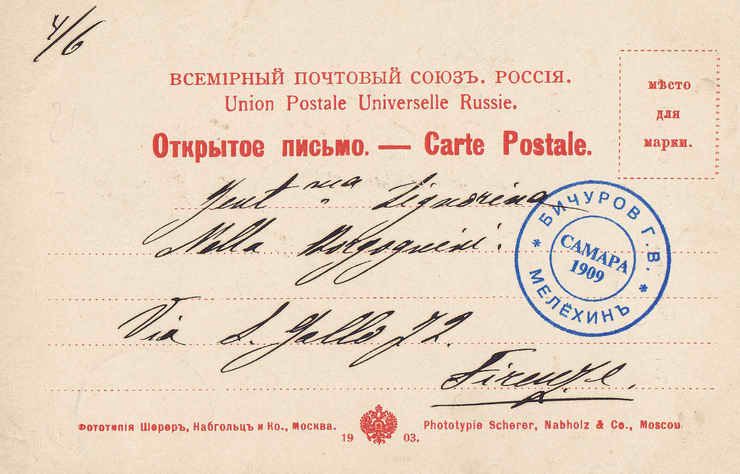 4/6
ВСЕМІРНЫЙ ПОЧТОВЫЙ СОЮЗЪ. РОССІЯ.
Union Postale Universelle Russie.
Открытое письмо. — Carte Postale.
мѣсто
для
марки.
Gent ma Signorina
Nella Borgognini.
Via S. Gallo 72
Firenze.
БИЧУРОВ Г. В.
САМАРА
1909
* МЕЛЁХИНЪ *
Фототипія Шереръ, Набгольцъ и Ко., Москва.
1903.
Phototypie Scherer, Nabholz & Co., Moscou